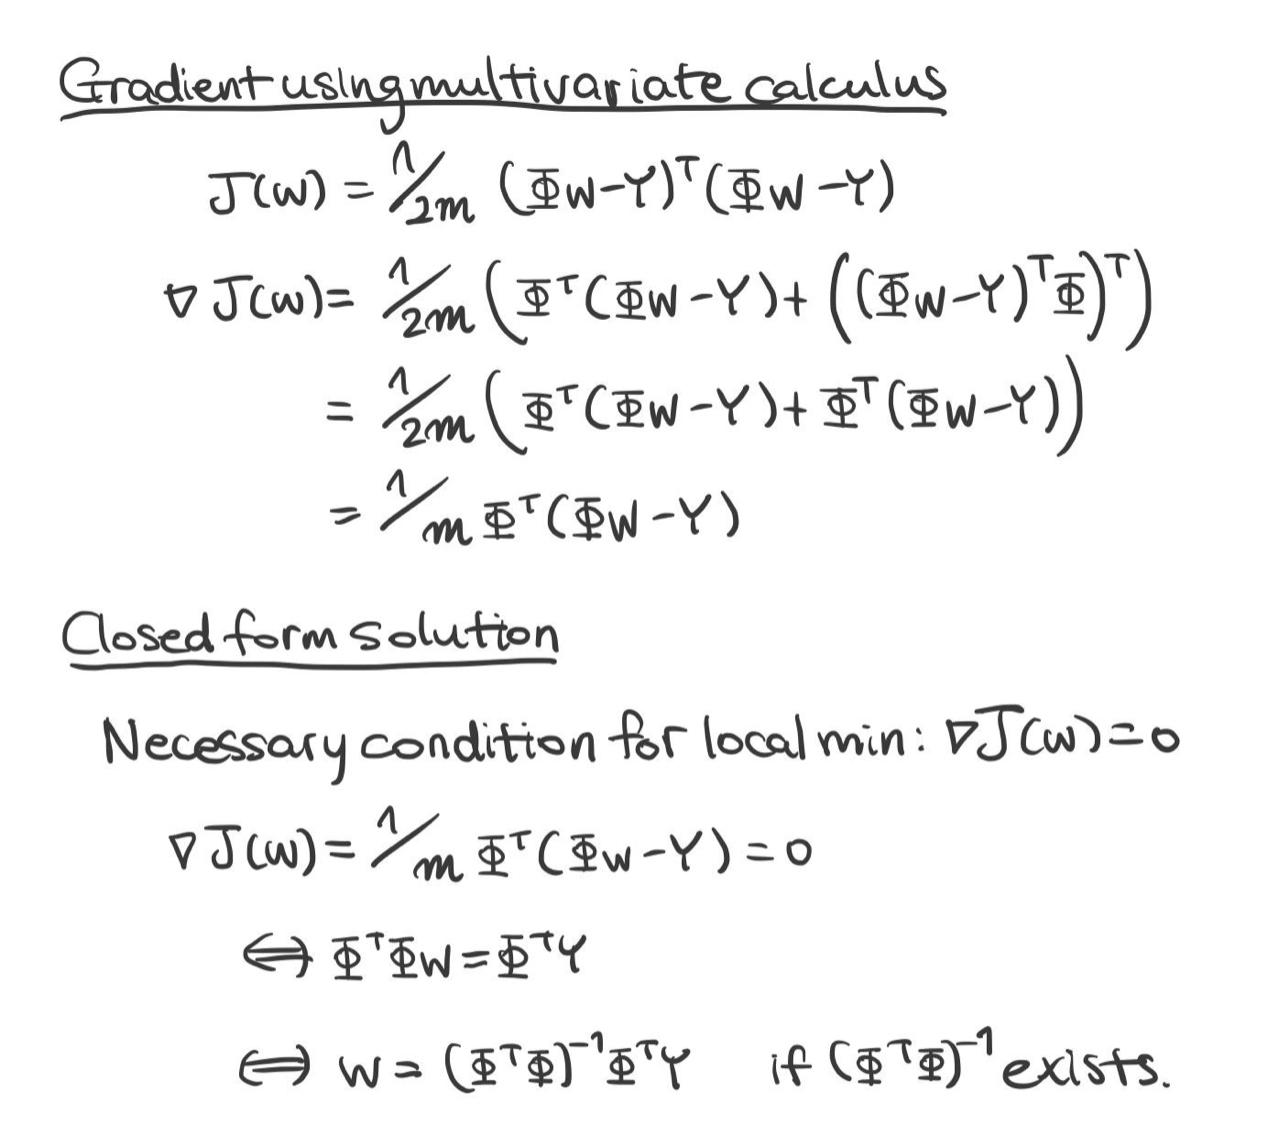 Gradient using multivariate calculus
J(w) = 1/2m (Φw-Y)ᵀ(Φw-Y)
∇J(w) = 1/2m (Φᵀ(Φw-Y) + ((Φw-Y)ᵀΦ)ᵀ)
= 1/2m (Φᵀ(Φw-Y) + Φᵀ(Φw-Y))
= 1/m Φᵀ(Φw-Y)
Closed form solution
Necessary condition for local min: ∇J(w)=0
∇J(w) = 1/m Φᵀ(Φw-Y) = 0
⇔ ΦᵀΦw = ΦᵀY
⇔ w = (ΦᵀΦ)⁻¹ΦᵀY if (ΦᵀΦ)⁻¹ exists.